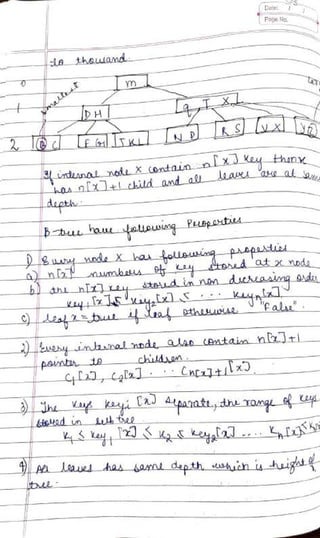 Date: / /
Page No.
in thousand
0
m
smallest
1
DH
q T X
2
B C
F G H
J K L
N P
R S
V X
Y Z
If internal node X contain n[x] key then x
has n[x]+1 child and all leaves are at same
depth.
B-tree have following Properties
1) Every node X has following properties
a) n[x] numbers of key stored at x node
b) the n[x] key stored in non decreasing order
key1[x] ≤ key2[x] ≤ ... keyn[x].
c) leaf x = true if leaf otherwise "False".
2) Every internal node also contain n[x]+1
pointer to children.
C1[x], C2[x] . . . Cn[x]+1[x].
3) The keys keyi [x] separate, the range of keys
stored in subtree
K1 ≤ key1 [x] ≤ K2 ≤ key2[x] .... Kn[x] ≤ K
4) All leaves has same depth which is height of
tree.